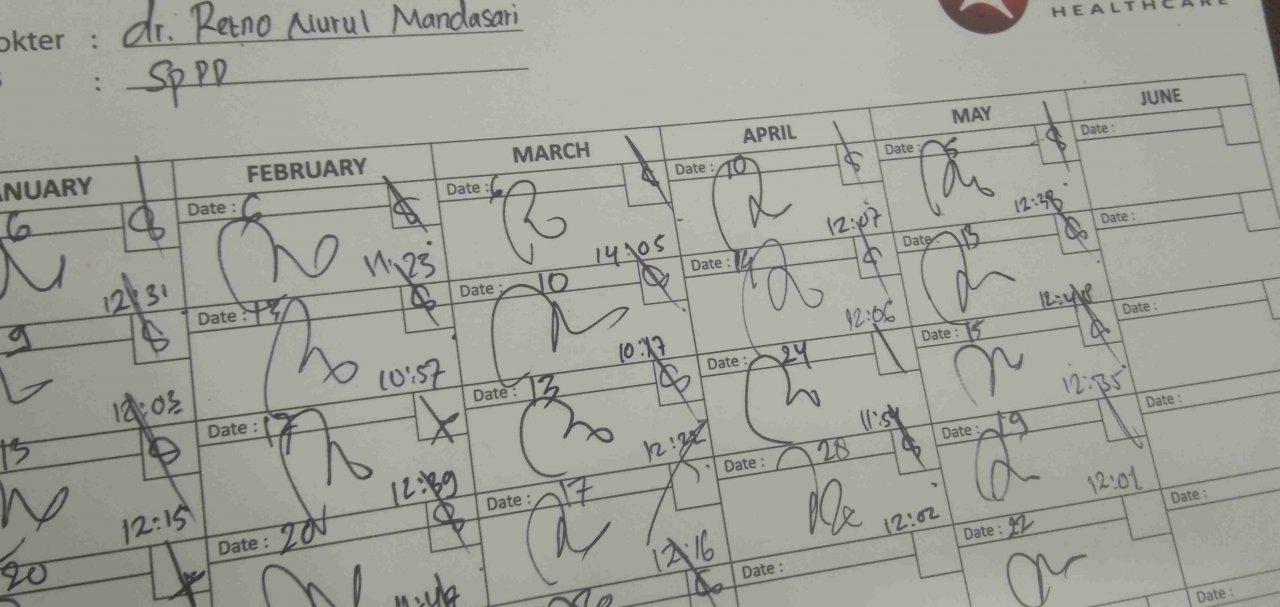 HEALTHCARE
okter : dr. Retno Nurul Mandasari
: Sp PD
ANUARY FEBRUARY MARCH APRIL MAY JUNE
6 Date : 6 Date : 6 Date : 10 Date : 6 Date :
12:31 11:23 14:05 12:07 12:38
9 Date : 13 Date : 10 Date : 14 Date : 13 Date :
12:03 10:57 10:17 12:06 12:48
13 Date : 17 Date : 13 Date : 24 Date : 15 Date :
12:15 12:39 12:22 11:54 12:35
20 Date : 20 Date : 17 Date : 28 Date : 19 Date :
12:16 12:02 12:01
Date : Date : 22 Date :
Date :